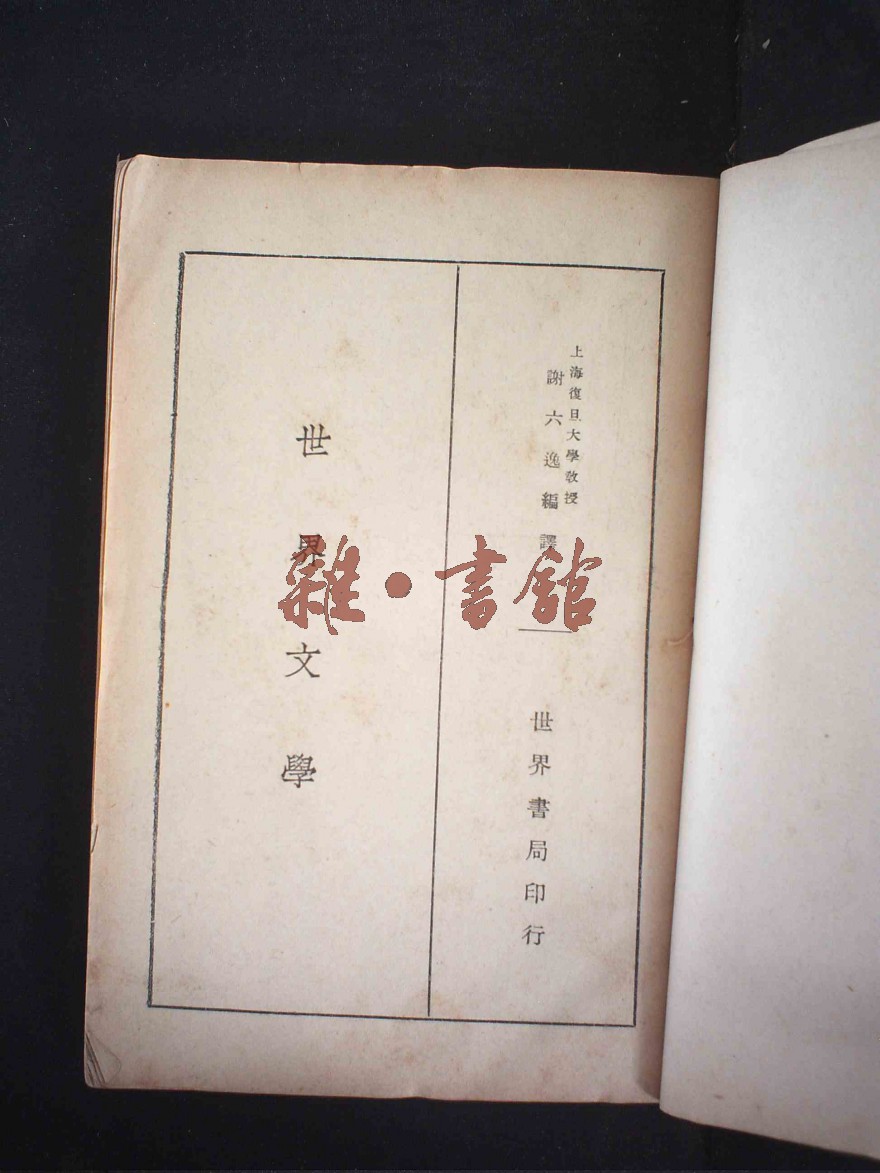 上海復旦大學教授
謝六逸編譯
世界書局印行
世界文學
雜·書館